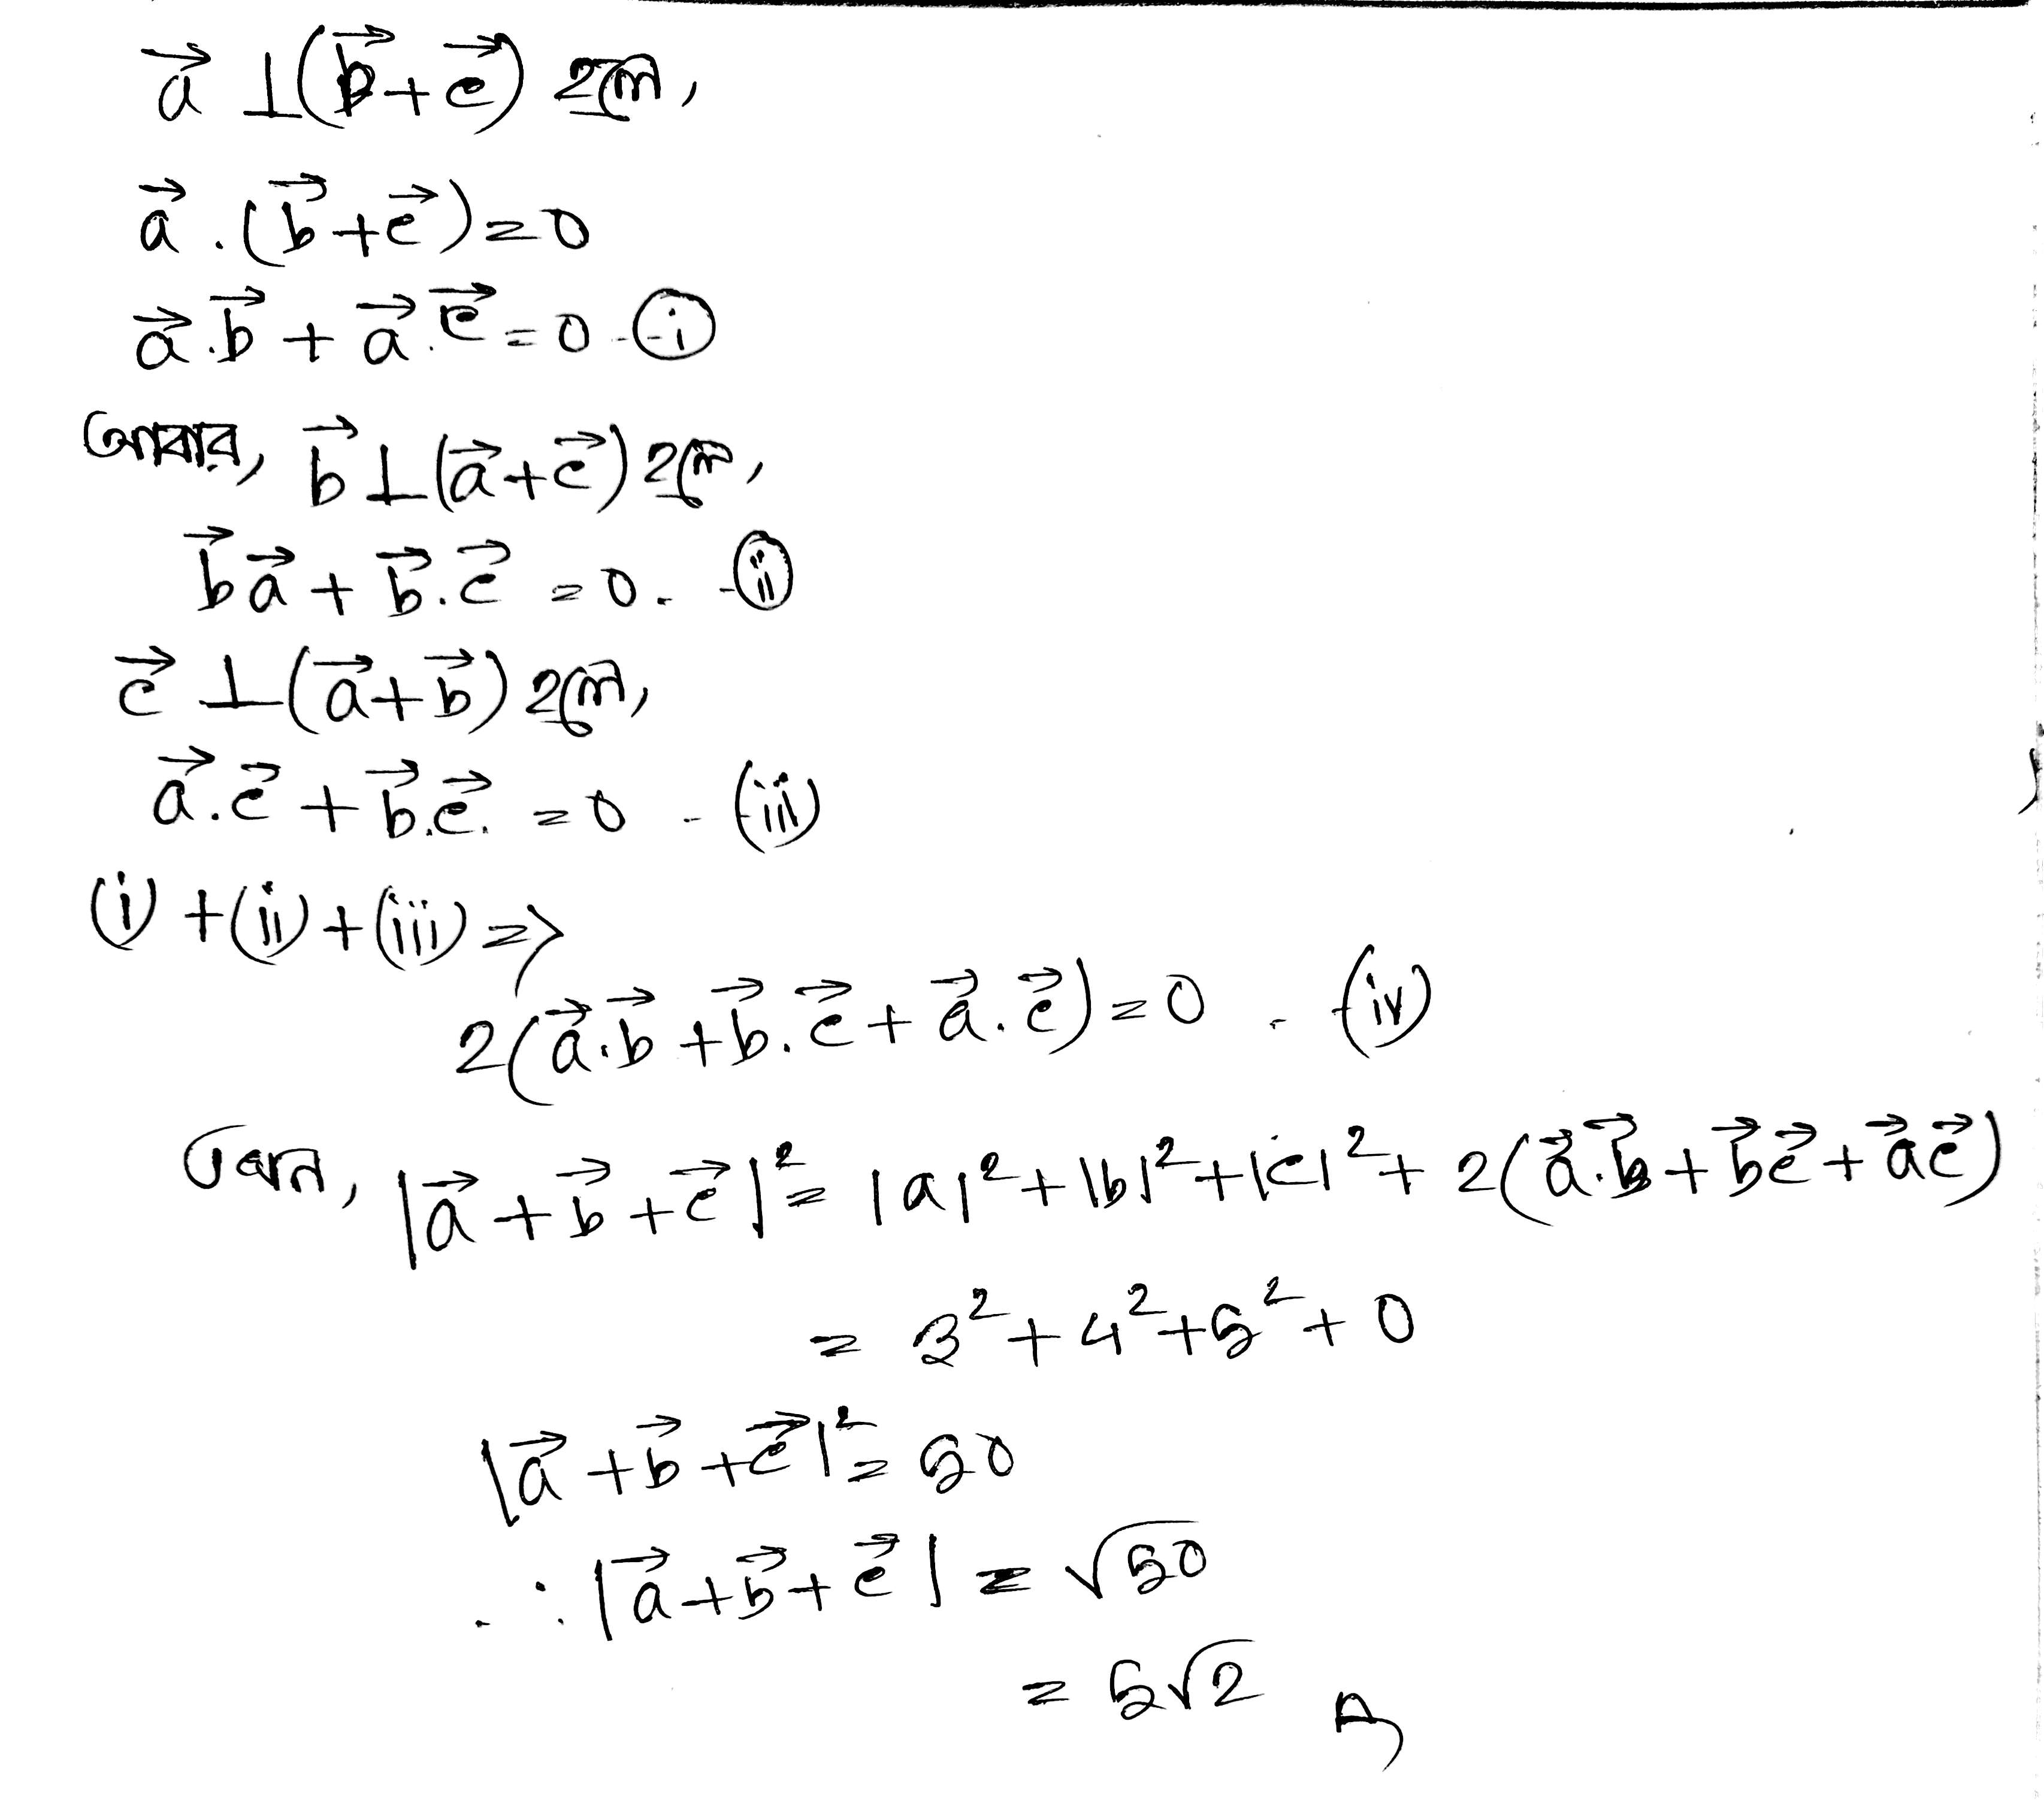 a⃗ ⊥(b⃗+c⃗) হলে,
a⃗ .(b⃗+c⃗)=0
a⃗.b⃗ + a⃗.c⃗ = 0 -- (i)
আবার, b⃗⊥(a⃗+c⃗) হলে,
b⃗a⃗ + b⃗.c⃗ = 0. - (ii)
c⃗ ⊥(a⃗+b⃗) হলে,
a⃗.c⃗ + b⃗.c⃗. = 0 - (iii)
(i) +(ii)+(iii) =>
2(a⃗.b⃗ +b⃗.c⃗ + a⃗.c⃗)=0 - (iv)
এখন, |a⃗+b⃗+c⃗|² = |a|²+|b|²+|c|²+ 2(a⃗.b⃗+b⃗c⃗+a⃗c⃗)
= 3²+4²+5²+0
|a⃗+b⃗+c⃗|²=50
∴ |a⃗+b⃗+c⃗| = √50
= 5√2